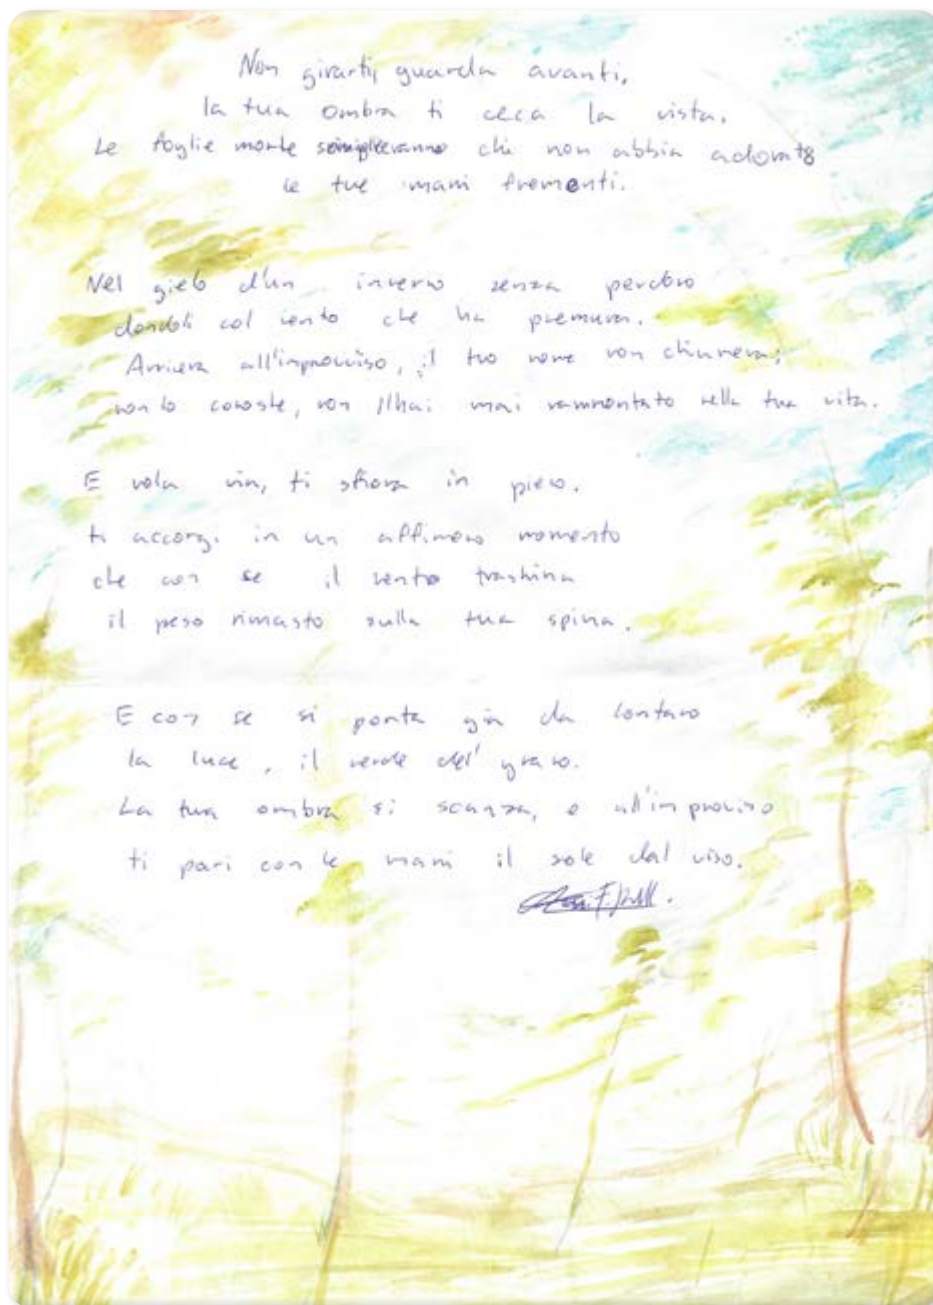 Non girarti, guarda avanti,
la tua ombra ti ceca la vista.
Le foglie morte che non abbia adorato
le tue mani frementi.
Nel gielo d'un inverno senza perdono
dondoli col vento che ha premura.
Arriverà all'improvviso, il tuo nome non chiamerà;
non lo conosce, non l'hai mai rammentato nella tua vita.
E vola via, ti sfiora in pieno.
ti accorgi in un affimero momento
che con se il vento trashina
il peso rimasto sulla tua spina.
E con se si porta già da lontano
la luce, il verde del grano.
La tua ombra si scansa, e all'improviso
ti pari con le mani il sole dal viso.